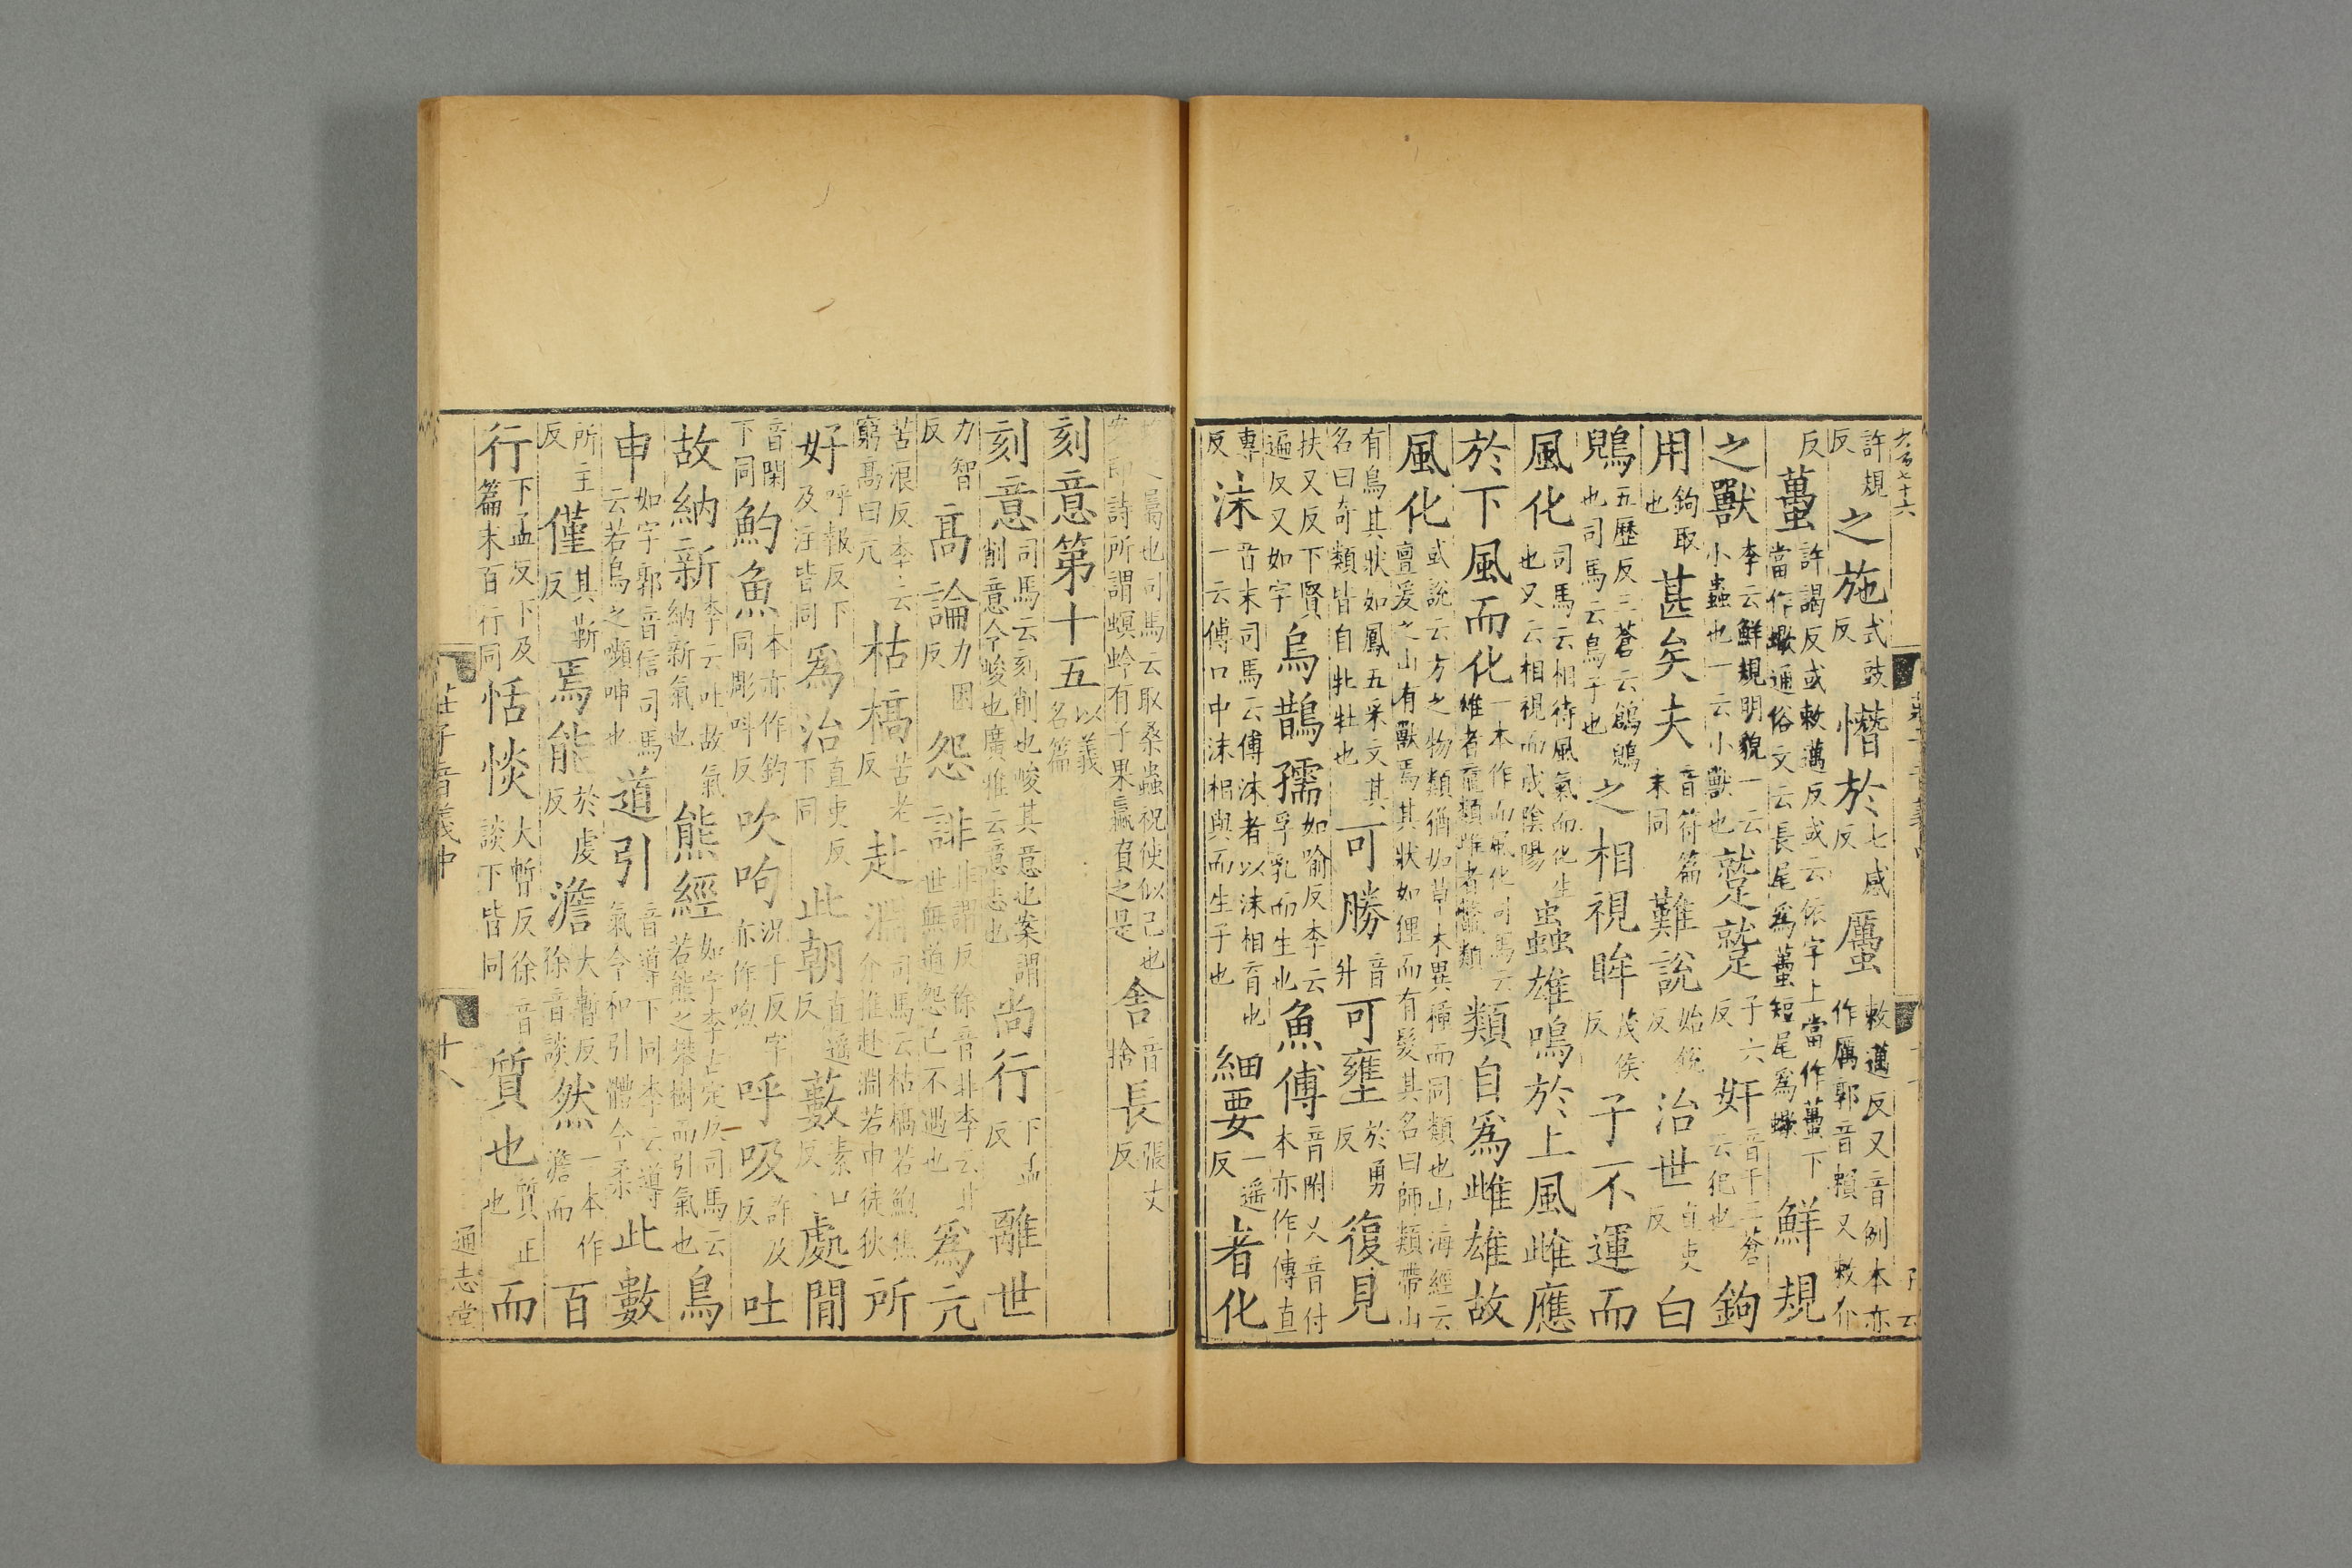 六百七十六
許規反之施式豉反憯於七感反蠆敕邁反又音例本亦作厲郭音賴又敕介
反蠆許謁反或敕邁反或云依字上當作蠆下當作蠍通俗文云長尾爲蠆短尾爲蠍鮮規
之獸李云鮮規明貌一云小蟲也一云小獸也蹵蹵子六反奸音干三蒼云犯也鉤
用鉤取也甚矣夫音符篇末同難說始銳反治世直吏反白
鶂五歷反三蒼云鶬鶂也司馬云鳥子也之相視眸茂侯反子不運而
風化司馬云相待風氣而化生也又云相視而成陰陽蟲雄鳴於上風雌應
於下風而化一本作而風化司馬云雄者黿類雌者鼈類類自爲雌雄故
風化或說云方之物類猶如草木異種而同類也山海經云亶爰之山有獸焉其狀如狸而有髮其名曰師類帶山
有鳥其狀如鳳五采文其名曰奇類皆自牝牡也可勝音升可壅於勇反復見
扶又反下賢遍反又如字烏鵲孺如喻反李云孚乳而生也魚傅音附又音付本亦作傳直
專反沫音末司馬云傅沫者以沫相育也一云傅口中沫相與而生子也細要一遙反者化
蜂之屬也司馬云取桑蟲祝使似己也案即詩所謂螟蛉有子果蠃負之是舍音捨長張丈反
刻意第十五以義名篇
刻意司馬云刻削也峻其意也案謂削意令峻也廣雅云意志也尚行下孟反離世
力智反高論力困反怨誹非謂反徐音非李云非世無道怨己不遇也爲亢
苦浪反李云窮高曰亢枯槁苦老反赴淵司馬云枯槁若鮑焦介推赴淵若申徒狄所
好呼報反下及注皆同爲治直吏反下同此朝直遙反藪素口反處閒
音閑下同魡魚本亦作釣同彫叫反吹呴況于反字亦作喣呼吸許及反吐
故納新李云吐故氣納新氣也熊經如字李古定反司馬云若熊之攀樹而引氣也鳥
申如字郭音信司馬云若鳥之嚬呻也道引音導下同李云導氣令和引體令柔此數
所主反僅其靳反焉能於虔反澹大暫反徐音談然一本作澹而百
行下孟反下及篇末百行同恬惔大暫反徐音談下皆同質也質正也而
莊子音義中
十八
通志堂